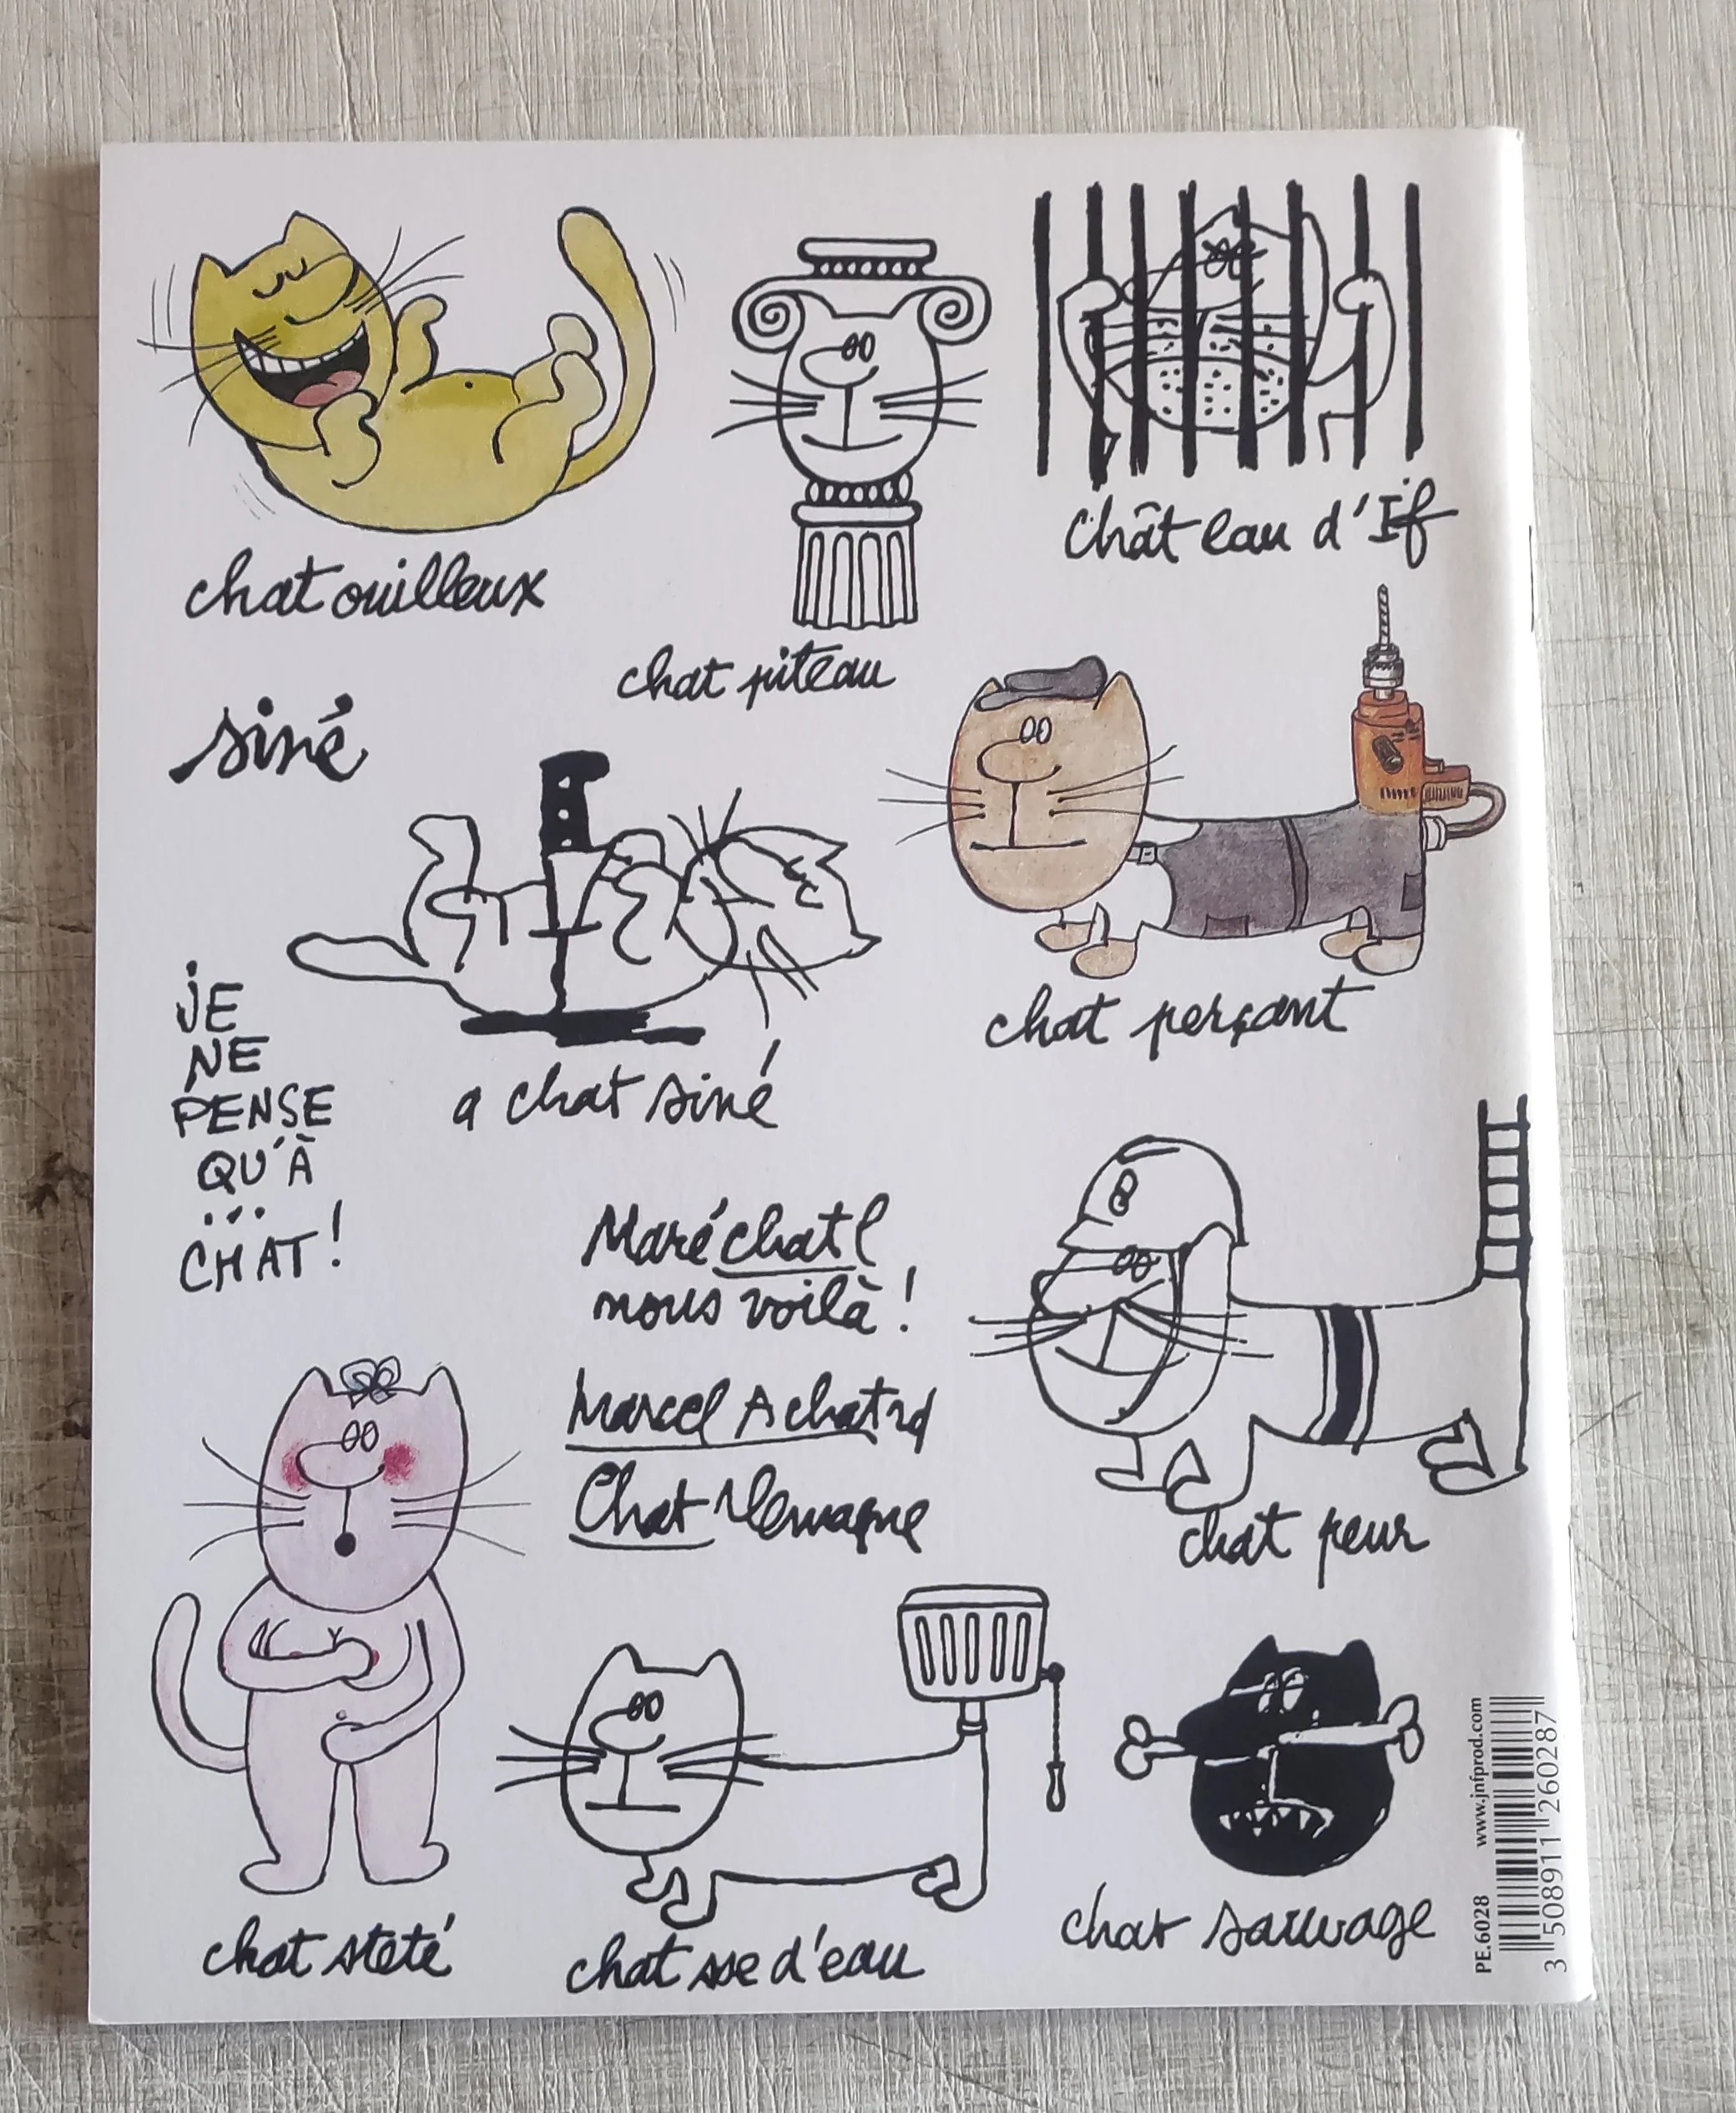 chatouilleux
chat piteau
Chât eau d'If
siné
a chat siné
chat perçant
JE
NE
PENSE
QU'À
...
CHAT!
Maréchatl
nous voilà!
Marcel Achatrd
Chatrlemagne
chat peur
chat steté
chat sse d'eau
chat sauvage
PE.6028 www.jnfprod.com
3 508911 260287